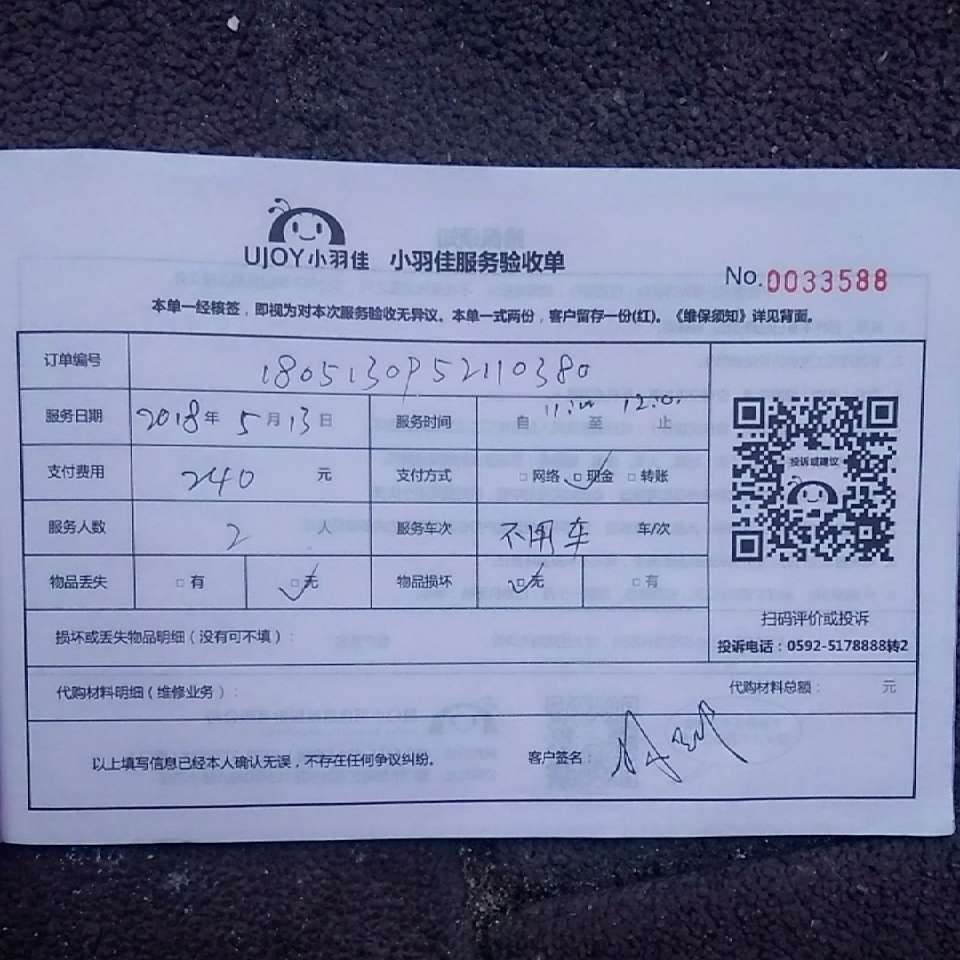 UJOY小羽佳 小羽佳服务验收单
No.0033588
本单一经核签，即视为对本次服务验收无异议。本单一式两份，客户留存一份(红)。《维保须知》详见背面。
订单编号 1805130952110380
服务日期 2018年 5月13日 服务时间 自 至 12:0 止
支付费用 240 元 支付方式 □网络 □现金 □转账
服务人数 2 人 服务车次 不用车 车/次
物品丢失 □有 □无 物品损坏 □无 □有
投诉或建议
扫码评价或投诉
投诉电话：0592-5178888转2
损坏或丢失物品明细（没有可不填）：
代购材料明细（维修业务）： 代购材料总额： 元
以上填写信息已经本人确认无误，不存在任何争议纠纷。 客户签名：